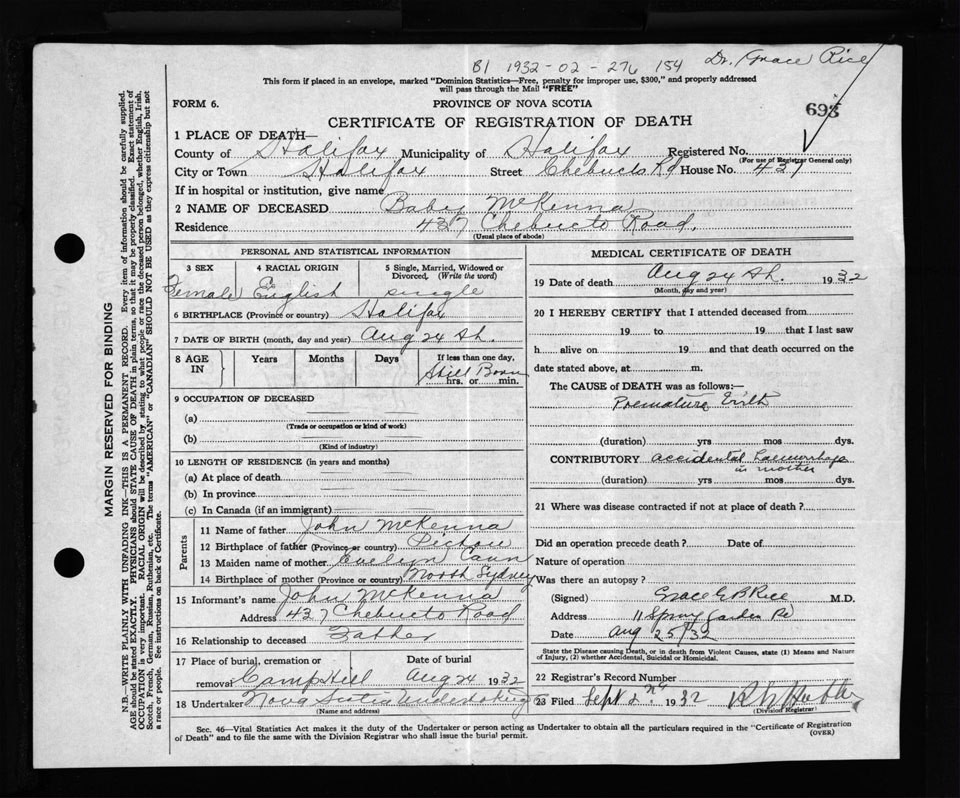 B1 1932-02-276 154 Dr. Grace Rice
This form if placed in an envelope, marked "Dominion Statistics—Free, penalty for improper use, $300," and properly addressed
will pass through the Mail "FREE"
FORM 6. PROVINCE OF NOVA SCOTIA
693
CERTIFICATE OF REGISTRATION OF DEATH
1 PLACE OF DEATH—
County of Halifax Municipality of Halifax Registered No.
(For use of Registrar General only)
City or Town Halifax Street Chebucto Rd House No. 437
If in hospital or institution, give name
2 NAME OF DECEASED Baby McKenna
Residence 437 Chebucto Road,
(Usual place of abode)
PERSONAL AND STATISTICAL INFORMATION
3 SEX 4 RACIAL ORIGIN 5 Single, Married, Widowed or
Divorced, (Write the word)
Female English single
6 BIRTHPLACE (Province or country) Halifax
7 DATE OF BIRTH (month, day and year) Aug 24 th.
8 AGE IN Years Months Days If less than one day,
Still Born
hrs. or min.
9 OCCUPATION OF DECEASED
(a)
(Trade or occupation or kind of work)
(b)
(Kind of industry)
10 LENGTH OF RESIDENCE (in years and months)
(a) At place of death
(b) In province
(c) In Canada (if an immigrant)
Parents
11 Name of father John McKenna
12 Birthplace of father (Province or country) Pictou
13 Maiden name of mother Evelyn Cann
14 Birthplace of mother (Province or country) North Sydney
15 Informant's name John McKenna
Address 437 Chebucto Road
16 Relationship to deceased Father
17 Place of burial, cremation or Date of burial
removal Camp Hill Aug 24 1932
18 Undertaker Nova Scotia Undertaking
(Name and address)
MEDICAL CERTIFICATE OF DEATH
19 Date of death Aug 24 th. 1932
(Month, day and year)
20 I HEREBY CERTIFY that I attended deceased from
19 to 19 that I last saw
h alive on 19 and that death occurred on the
date stated above, at m.
The CAUSE of DEATH was as follows:—
Premature Birth
(duration) yrs mos dys.
CONTRIBUTORY accidental haemorrhage
in mother
(duration) yrs mos dys.
21 Where was disease contracted if not at place of death?
Did an operation precede death? Date of
Nature of operation
Was there an autopsy?
(Signed) Grace G B Rice M.D.
Address 11 Spring Garden Rd
Date Aug 25/32
State the Disease causing Death, or in death from Violent Causes, state (1) Means and Nature
of Injury, (2) whether Accidental, Suicidal or Homicidal.
22 Registrar's Record Number
23 Filed Sept 2nd 1932
(Division Registrar)
Sec. 46—Vital Statistics Act makes it the duty of the Undertaker or person acting as Undertaker to obtain all the particulars required in the "Certificate of Registration
of Death" and to file the same with the Division Registrar who shall issue the burial permit. (OVER)
MARGIN RESERVED FOR BINDING
N.B.—WRITE PLAINLY WITH UNFADING INK—THIS IS A PERMANENT RECORD. Every item of information should be carefully supplied.
AGE should be stated EXACTLY. PHYSICIANS should STATE CAUSE OF DEATH in plain terms, so that it may be properly classified. Exact statement of
OCCUPATION is very important. RACIAL ORIGIN will be described by stating to what people or race the deceased person belonged, whether English, Irish,
Scotch, French, German, Russian, Ruthenian, etc. The terms "AMERICAN" or "CANADIAN" SHOULD NOT BE USED as they express citizenship but not
a race or people. See instructions on back of Certificate.